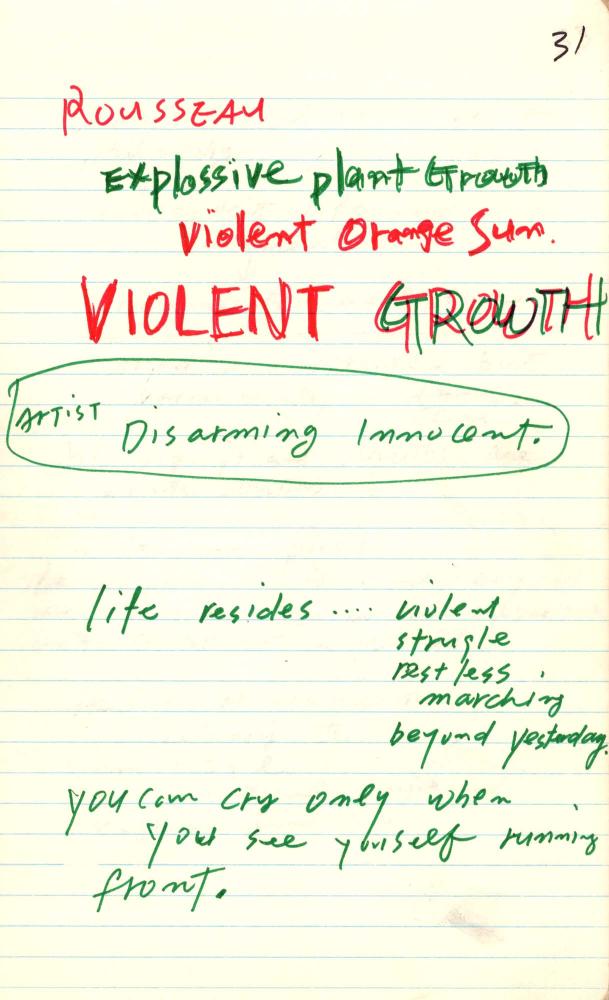 31
ROUSSEAU
Explossive plant Growth
Violent Orange Sun.
VIOLENT GROWTH
ARTIST Disarming Innocent.
life resides .... violent
strugle
restless
marching
beyond yesterday.
you can cry only when
you see yourself running
front.